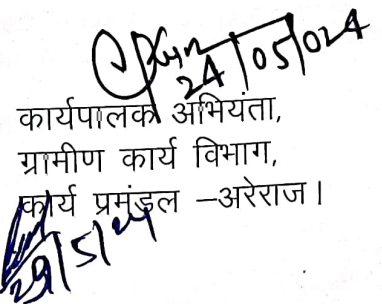 24/05/024
कार्यपालक अभियंता,
ग्रामीण कार्य विभाग,
कार्य प्रमंडल –अरेराज।
29/5/24